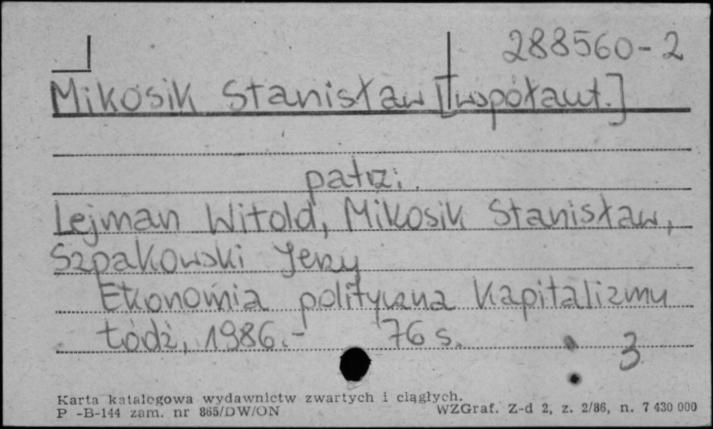 288560-2
Mikosik Stanisław [współaut.]
patrz:
Lejman Witold, Mikosik Stanisław,
Szpakowski Jerzy
Ekonomia polityczna kapitalizmu
Łódź, 1986.- 76 s.
3
Karta katalogowa wydawnictw zwartych i ciągłych.
P -B-144 zam. nr 865/DW/ON WZGraf. Z-d 2, z. 2/86, n. 7 430 000